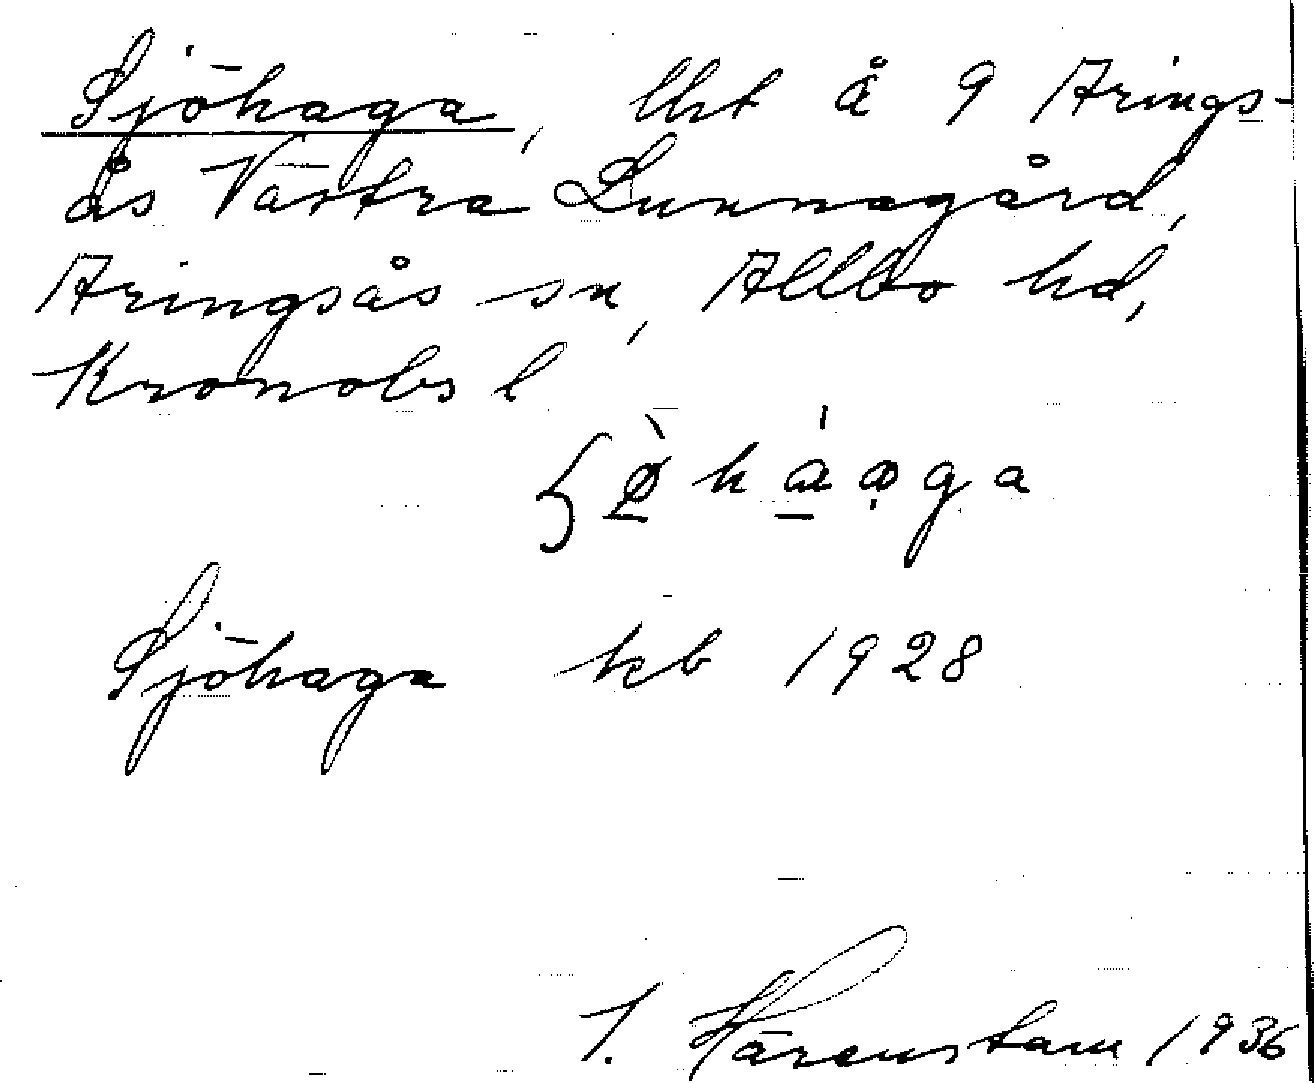 Sjöhaga, lht å 9 Arings-
ås Västra Lunnagård,
Aringsås sn, Allbo hd,
Kronobs l
Sjöhaga kb 1928
I. Härenstam 1936